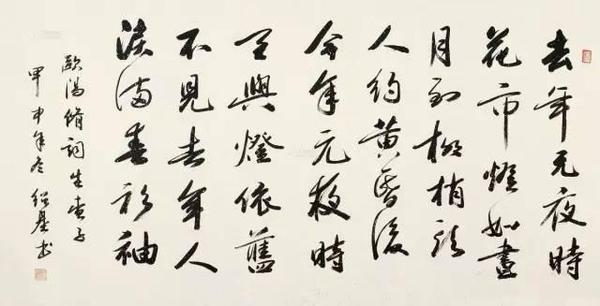 去年元夜時
花市燈如晝
月到柳梢頭
人約黃昏後
今年元夜時
月與燈依舊
不見去年人
淚滿春衫袖
歐陽脩詞生查子
甲申年冬 紹基書